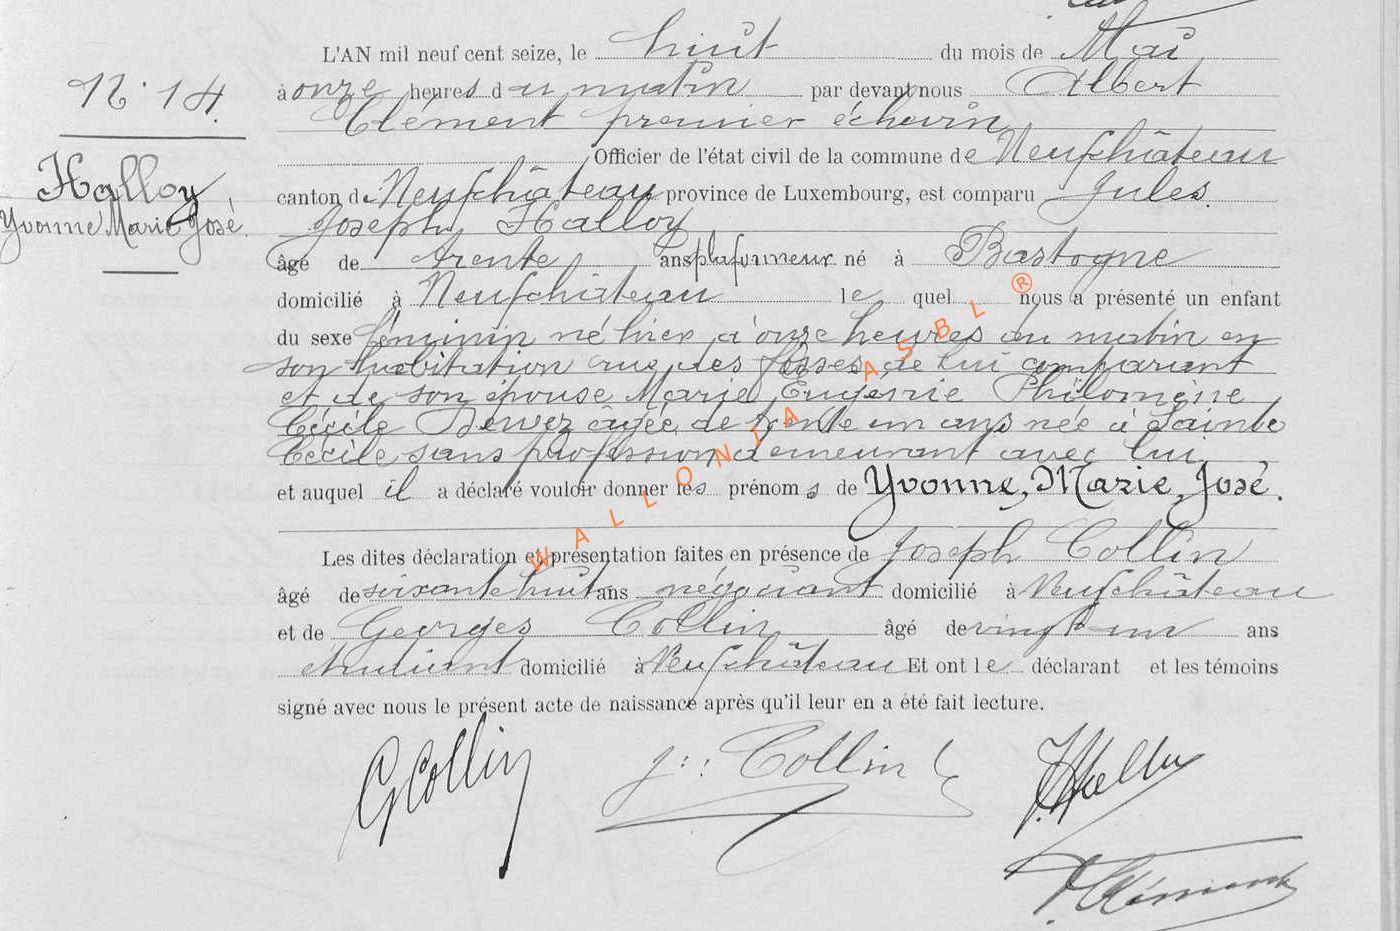 L'AN mil neuf cent seize, le huit du mois de Mai
N° 14.
à onze heures du matin par devant nous Albert
Clément premier échevin
Officier de l'état civil de la commune de Neufchâteau
Halloy
Yvonne Marie José.
canton de Neufchâteau province de Luxembourg, est comparu Jules
Joseph Halloy
âgé de trente ans plafonneur né à Bastogne
domicilié à Neufchâteau lequel nous a présenté un enfant
du sexe féminin né hier à onze heures du matin en
son habitation rue des fosses de lui comparant
et de son épouse Marie Eugénie Philomène
Cécile Dewez âgée de trente un ans née à Sainte
Cécile sans profession demeurant avec lui
et auquel il a déclaré vouloir donner les prénoms de Yvonne, Marie, José.
Les dites déclaration et présentation faites en présence de Joseph Collin
âgé de soixante huit ans négociant domicilié à Neufchâteau
et de Georges Collin âgé de vingt un ans
étudiant domicilié à Neufchâteau Et ont le déclarant et les témoins
signé avec nous le présent acte de naissance après qu'il leur en a été fait lecture.
G Collin J. Collin J. Halloy
A. Clément
WALLONIA ASBL ®